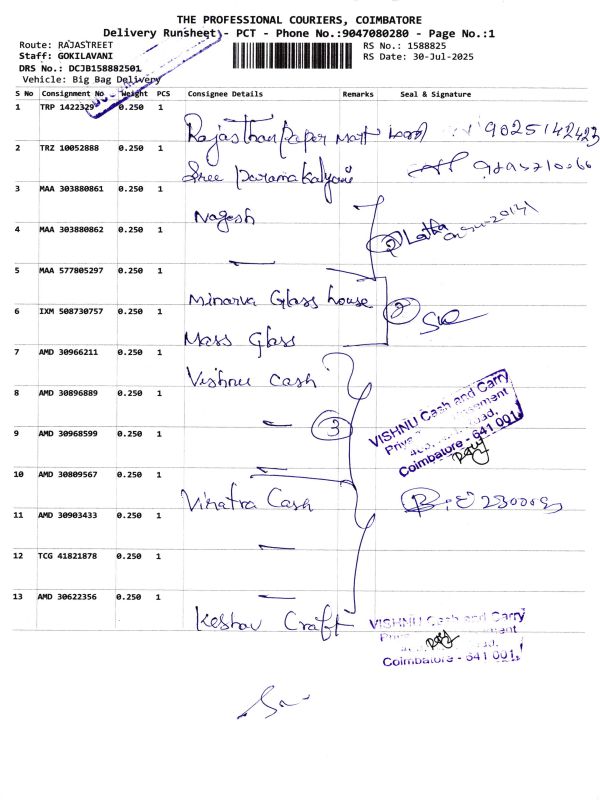 THE PROFESSIONAL COURIERS, COIMBATORE
Delivery Runsheet - PCT - Phone No.:9047080280 - Page No.:1
Route: RAJASTREET
RS No.: 1588825
Staff: GOKILAVANI
RS Date: 30-Jul-2025
DRS No.: DCJB158882501
Vehicle: Big Bag Delivery
S No Consignment No Weight PCS Consignee Details Remarks Seal & Signature
1 TRP 1422329 0.250 1
Rajasthan Paper Mart 9025142423
2 TRZ 10052888 0.250 1
Sree Paramakalyani
3 MAA 303880861 0.250 1
Nagesh
4 MAA 303880862 0.250 1
② Latha
5 MAA 577805297 0.250 1
Minarva Glass house
6 IXM 508730757 0.250 1
②
Mass Glass
7 AMD 30966211 0.250 1
Vishnu Cash
8 AMD 30896889 0.250 1
VISHNU Cash and Carry
9 AMD 30968599 0.250 1
③
Coimbatore - 641 001.
10 AMD 30809567 0.250 1
Viratra Cash
11 AMD 30903433 0.250 1
12 TCG 41821878 0.250 1
13 AMD 30622356 0.250 1
Keshav Craft
VISHNU Cash and Carry
Coimbatore - 641 001.